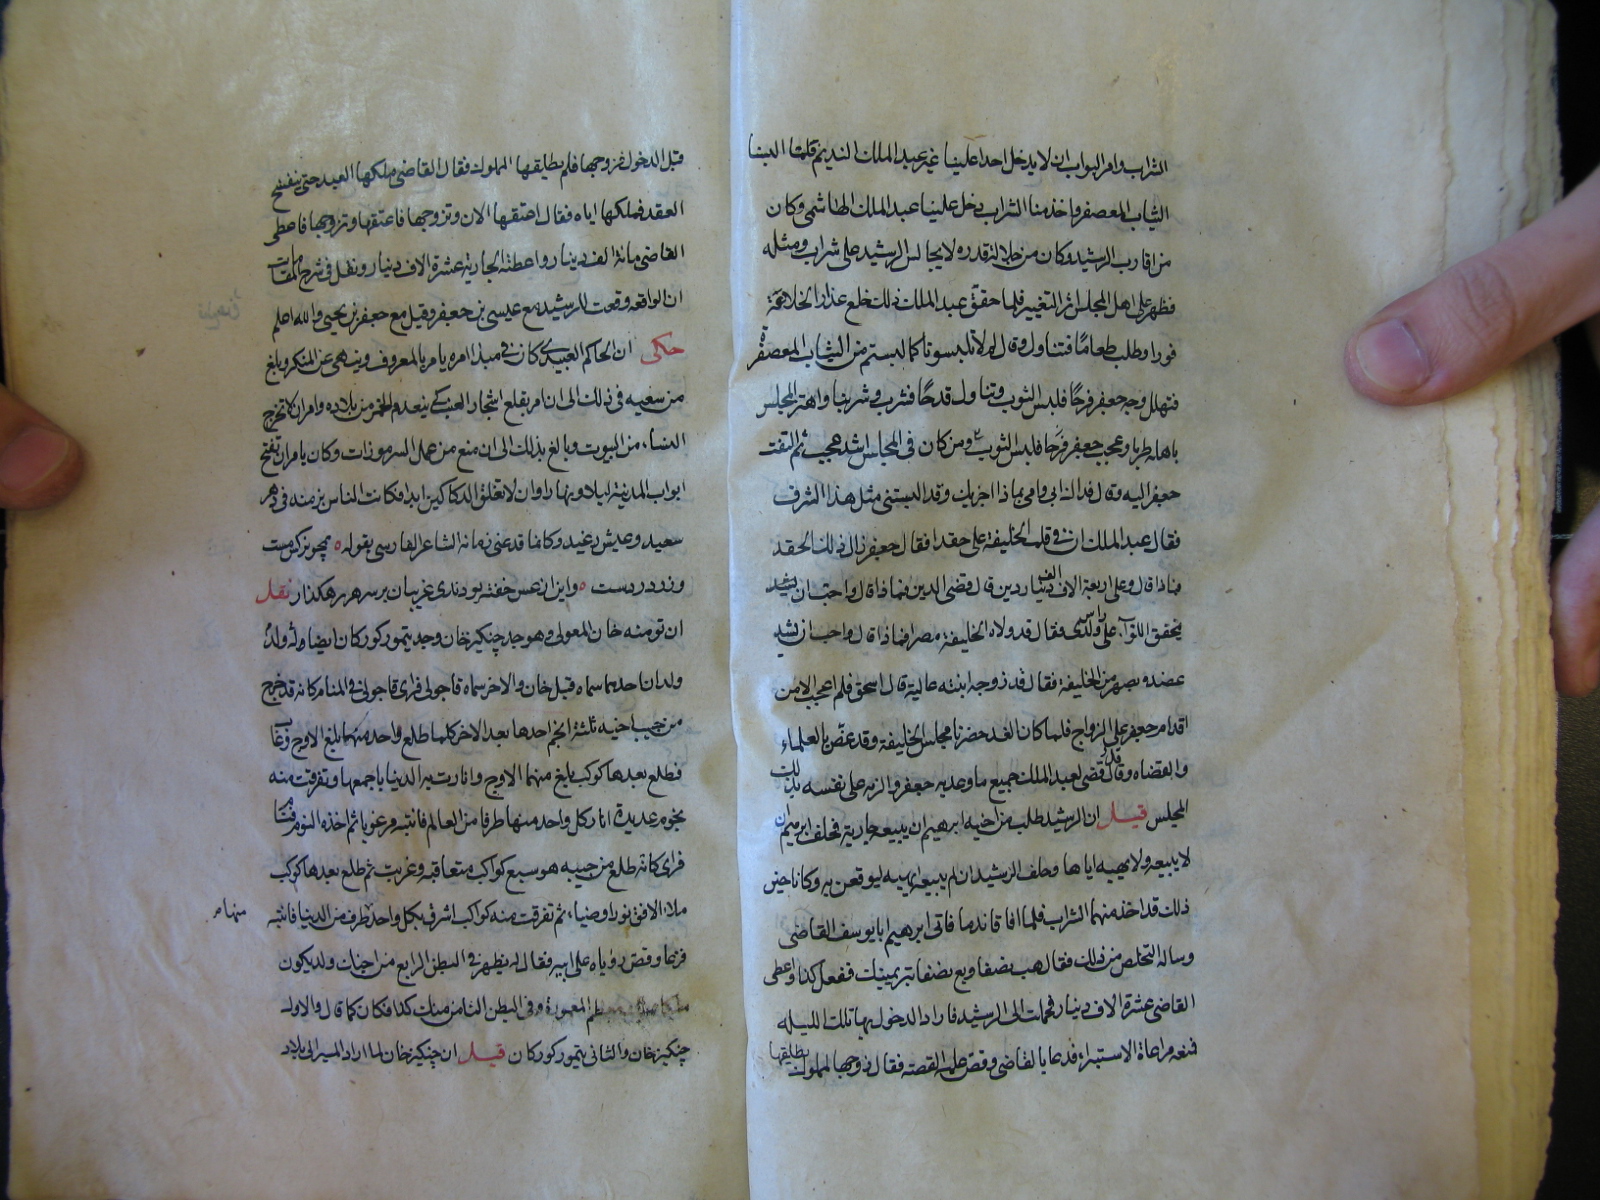 الشراب وامر البواب ان لا يدخل احدا علينا غير عبد الملك النديم فلما لبسنا
الثياب المعصفر واخذ منا الشراب دخل علينا عبد الملك الهاشمي وكان
من اقارب الرشيد وكان من جلالة قدره لا يجالس الرشيد على شراب ومثله
فظهر على اهل المجلس اثر التغيير فلما حقق عبد الملك ذلك خلع عذار الخلاعة
فورا وطلب طعاما فتناول وقال لم لا تلبسونا كما لبستم من الثياب المعصفرة
فتهلل وجه جعفر فرحًا فلبس الثوب وتناول قدحًا فشرب وشربنا واهتز المجلس
باهله طربا وعجب جعفر فرحًا فلبس الثوب ومن كان في المجلس اشد عجب ثم التفت
جعفر اليه وقال فداك ابي وامي بماذا اجزيك وقد البستني مثل هذا الشرف
فقال عبد الملك ان في قلب الخليفة على حقدا فقال جعفر زال ذلك الحقد
فماذا قال وعلى اربعة الاف الف دينار دين قال قضى الدين فماذا قال واحب ان يشد
بخفق اللواء على راس ولدي فقال قد ولاه الخليفة مصر فماذا قال واحب ان يشد
عضده بصهر من الخليفة فقال قد زوجه ابنته عالية قال اسحق فلم اعجب الا من
اقدام جعفر على الزواج فلما كان الغد حضرنا مجلس الخليفة وقد غص بالعلماء
والقضاه وقال قد قضى لعبد الملك جميع ما وعد به جعفر والزم على نفسه بذلك
المجلس قيل ان الرشيد طلب من اخيه ابرهيم ان يبيعه جارية فحلف ابرهيم ان
لا يبيعه ولا يهبه اياها وحلف الرشيد ان لم يبعه او يهبه ليوقعن به وكانا حين
ذلك قد اخذ منهما الشراب فلما افاقا ندما فاتى ابرهيم ابا يوسف القاضي
وساله التخلص من ذلك فقال هب نصفا وبع نصفا تبر يمينك ففعل كذا واعطى
القاضي عشرة الاف دينار فحملت الى الرشيد فاراد الدخول بها تلك الليله
فمنعه مراعاة الاستبراء فدعا بالقاضي وقص عليه القصة فقال زوجها لمملوك يطلقها
قبل الدخول فزوجها فلم يطلقها المملوك فقال القاضي ملكها العبد حتى ينفسخ
العقد فملكها اياه فقال اعتقها الان وتزوجها فاعتقها وتزوجها فاعطى
القاضي مائة الف دينار واعطته الجارية عشرة الاف دينار ونقل في شرح المقامات
ان الواقعه وقعت للرشيد مع عيسى بن جعفر وقيل مع جعفر بن يحيى والله اعلم
حكى ان الحاكم العبيدي كان في مبدا امره يامر بالمعروف وينهى عن المنكر وبلغ
من سعيه في ذلك الى ان امر بقلع اشجار العنب كي ينعدم الخمر من بلاده وامر ان لا تخرج
النساء من البيوت وبالغ بذلك الى ان منع من عمل السرموزات وكان يامر ان تفتح
ابواب المدينة ليلا ونهارا وان لا تغلق الدكاكين ابدا فكانت الناس بزمنه في دهر
سعيد وعيش رغيد وكانما قد عنى زمانه الشاعر الفارسي بقوله
نقل
ان تومنه خان المغولي وهو جد چنكيز خان وجد تيمور كوركان ايضا وله ولد
ولدان احدهما سماه قبل خان والاخر سماه قاجولي فراى قاجولي في المنام كانه قد خرج
من جيب اخيه ثلثة انجم احدها بعد الاخر كلما طلع واحد منهما بلغ الاوج وغاب
فطلع بعدها كوكب بلغ منهما الاوج وانارت به الدنيا باجمعها وتفرقت منه
نجوم عديدة انار كل واحد منها طرفا من العالم فانتبه مرعوبا ثم اخذه النوم
فراى كانه طلع من جيبه هو سبع كواكب متعاقبه وغربت ثم طلع بعدها كوكب
ملاء الافق نورا وضياء ثم تفرقت منه كواكب اشرق بكل واحد منها طرف من الدنيا فانتبه
فزعا وقص رؤياه على ابيه فقال له يظهر في البطن الرابع من اخيك ولد يكون
المعمورة وفي البطن الثامن منك كذا فكان كما قال والاول
چنكيز خان والثاني تيمور كوركان قيل ان چنكيز خان لما اراد المسير الى بلاد